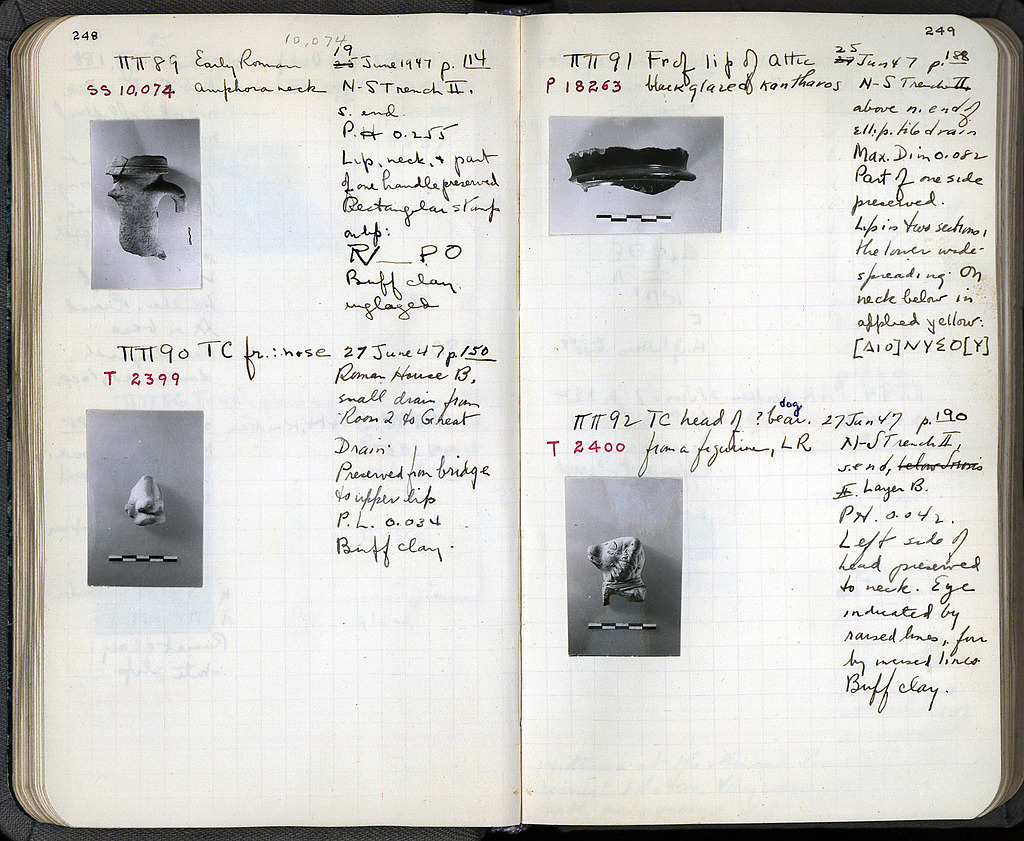 248
10,074
ΠΠ89 Early Roman
SS 10,074 amphora neck
19
25 June 1947 p. 114
N-S Trench II.
s. end.
P.H 0.255
Lip, neck, + part
of one handle preserved
Rectangular stamp
on lip:
PO
Buff clay.
unglazed
ΠΠ90 TC fr.: nose
T 2399
27 June 47 p. 150
Roman House B,
small drain from
Room 2 to Great
Drain.
Preserved from bridge
to upper lip
P.L. 0.034
Buff clay.
249
ΠΠ91 Fr of lip of Attic
P 18263 black glazed kantharos
25
27 Jun 47 p. 188
N-S Trench II,
above n. end of
ellip. tile drain
Max. Dim 0.082
Part of one side
preserved.
Lip in two sections,
the lower wide-
spreading. On
neck below in
applied yellow:
[ΔΙΟ]ΝΥΣΟ[Υ]
dog
ΠΠ92 TC head of ? bear.
T 2400 from a figurine, LR
27 Jun 47 p. 190
N-S Trench II,
s. end, below
II. Layer B.
P.H. 0.042.
Left side of
head preserved
to neck. Eye
indicated by
raised lines, fur
by incised lines
Buff clay.